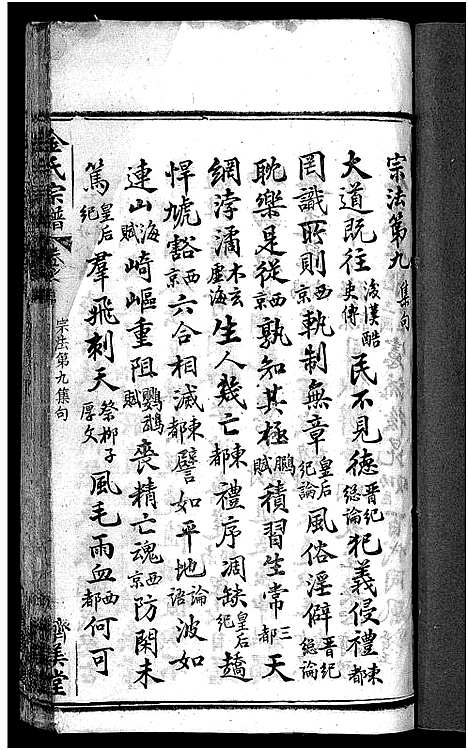 宗法第九 集句
大道既往後漢酷吏傳民不見德晉紀總論犯義侵禮東京
罔識所則西京執制無章皇后紀論風俗淫僻晉紀總論
耽樂是從西京孰知其極鵩賦積習生常三都天
綱浡潏木玄虛海生人幾亡東都禮序凋缺皇后紀蟜
悍虓豁西京六合相滅東都譬如平地論語波如
連山海賦崎嶇重阻鸚鵡賦喪精亡魂西京防閑未
篤皇后紀羣飛刺天祭柳子厚文風毛雨血西都何可
金氏宗譜 卷之
宗法第九集句
濟美堂